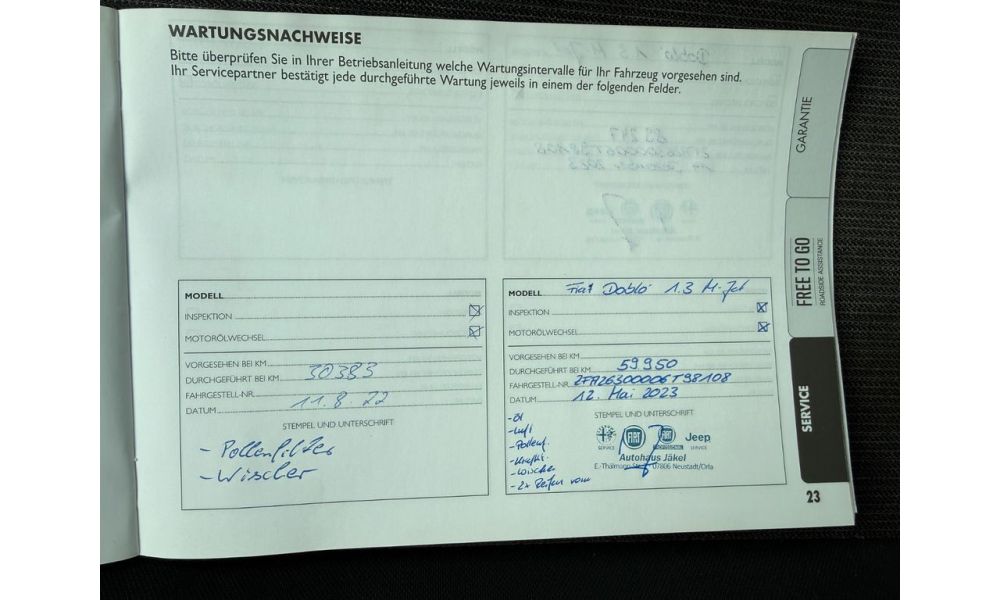 WARTUNGSNACHWEISE
Bitte überprüfen Sie in Ihrer Betriebsanleitung welche Wartungsintervalle für Ihr Fahrzeug vorgesehen sind.
Ihr Servicepartner bestätigt jede durchgeführte Wartung jeweils in einem der folgenden Felder.
MODELL
INSPEKTION
MOTORÖLWECHSEL
VORGESEHEN BEI KM
DURCHGEFÜHRT BEI KM 30383
FAHRGESTELL-NR.
DATUM 11.8.22
STEMPEL UND UNTERSCHRIFT
- Pollenfilter
- Wischer
MODELL Fiat Doblo 1.3 M-Jet
INSPEKTION
MOTORÖLWECHSEL
VORGESEHEN BEI KM
DURCHGEFÜHRT BEI KM 59950
FAHRGESTELL-NR. ZFA26300006T98108
DATUM 12. Mai 2023
STEMPEL UND UNTERSCHRIFT
- Öl
- Luft
- Pollenf.
- Kraftst.
- Wischer
- 2x Reifen vorn
SERVICE
FIAT
FIAT
PROFESSIONAL
Jeep
SERVICE
Autohaus Jäkel
E.-Thälmann-Str. 07806 Neustadt/Orla
GARANTIE
FREE TO GO
ROADSIDE ASSISTANCE
SERVICE
23